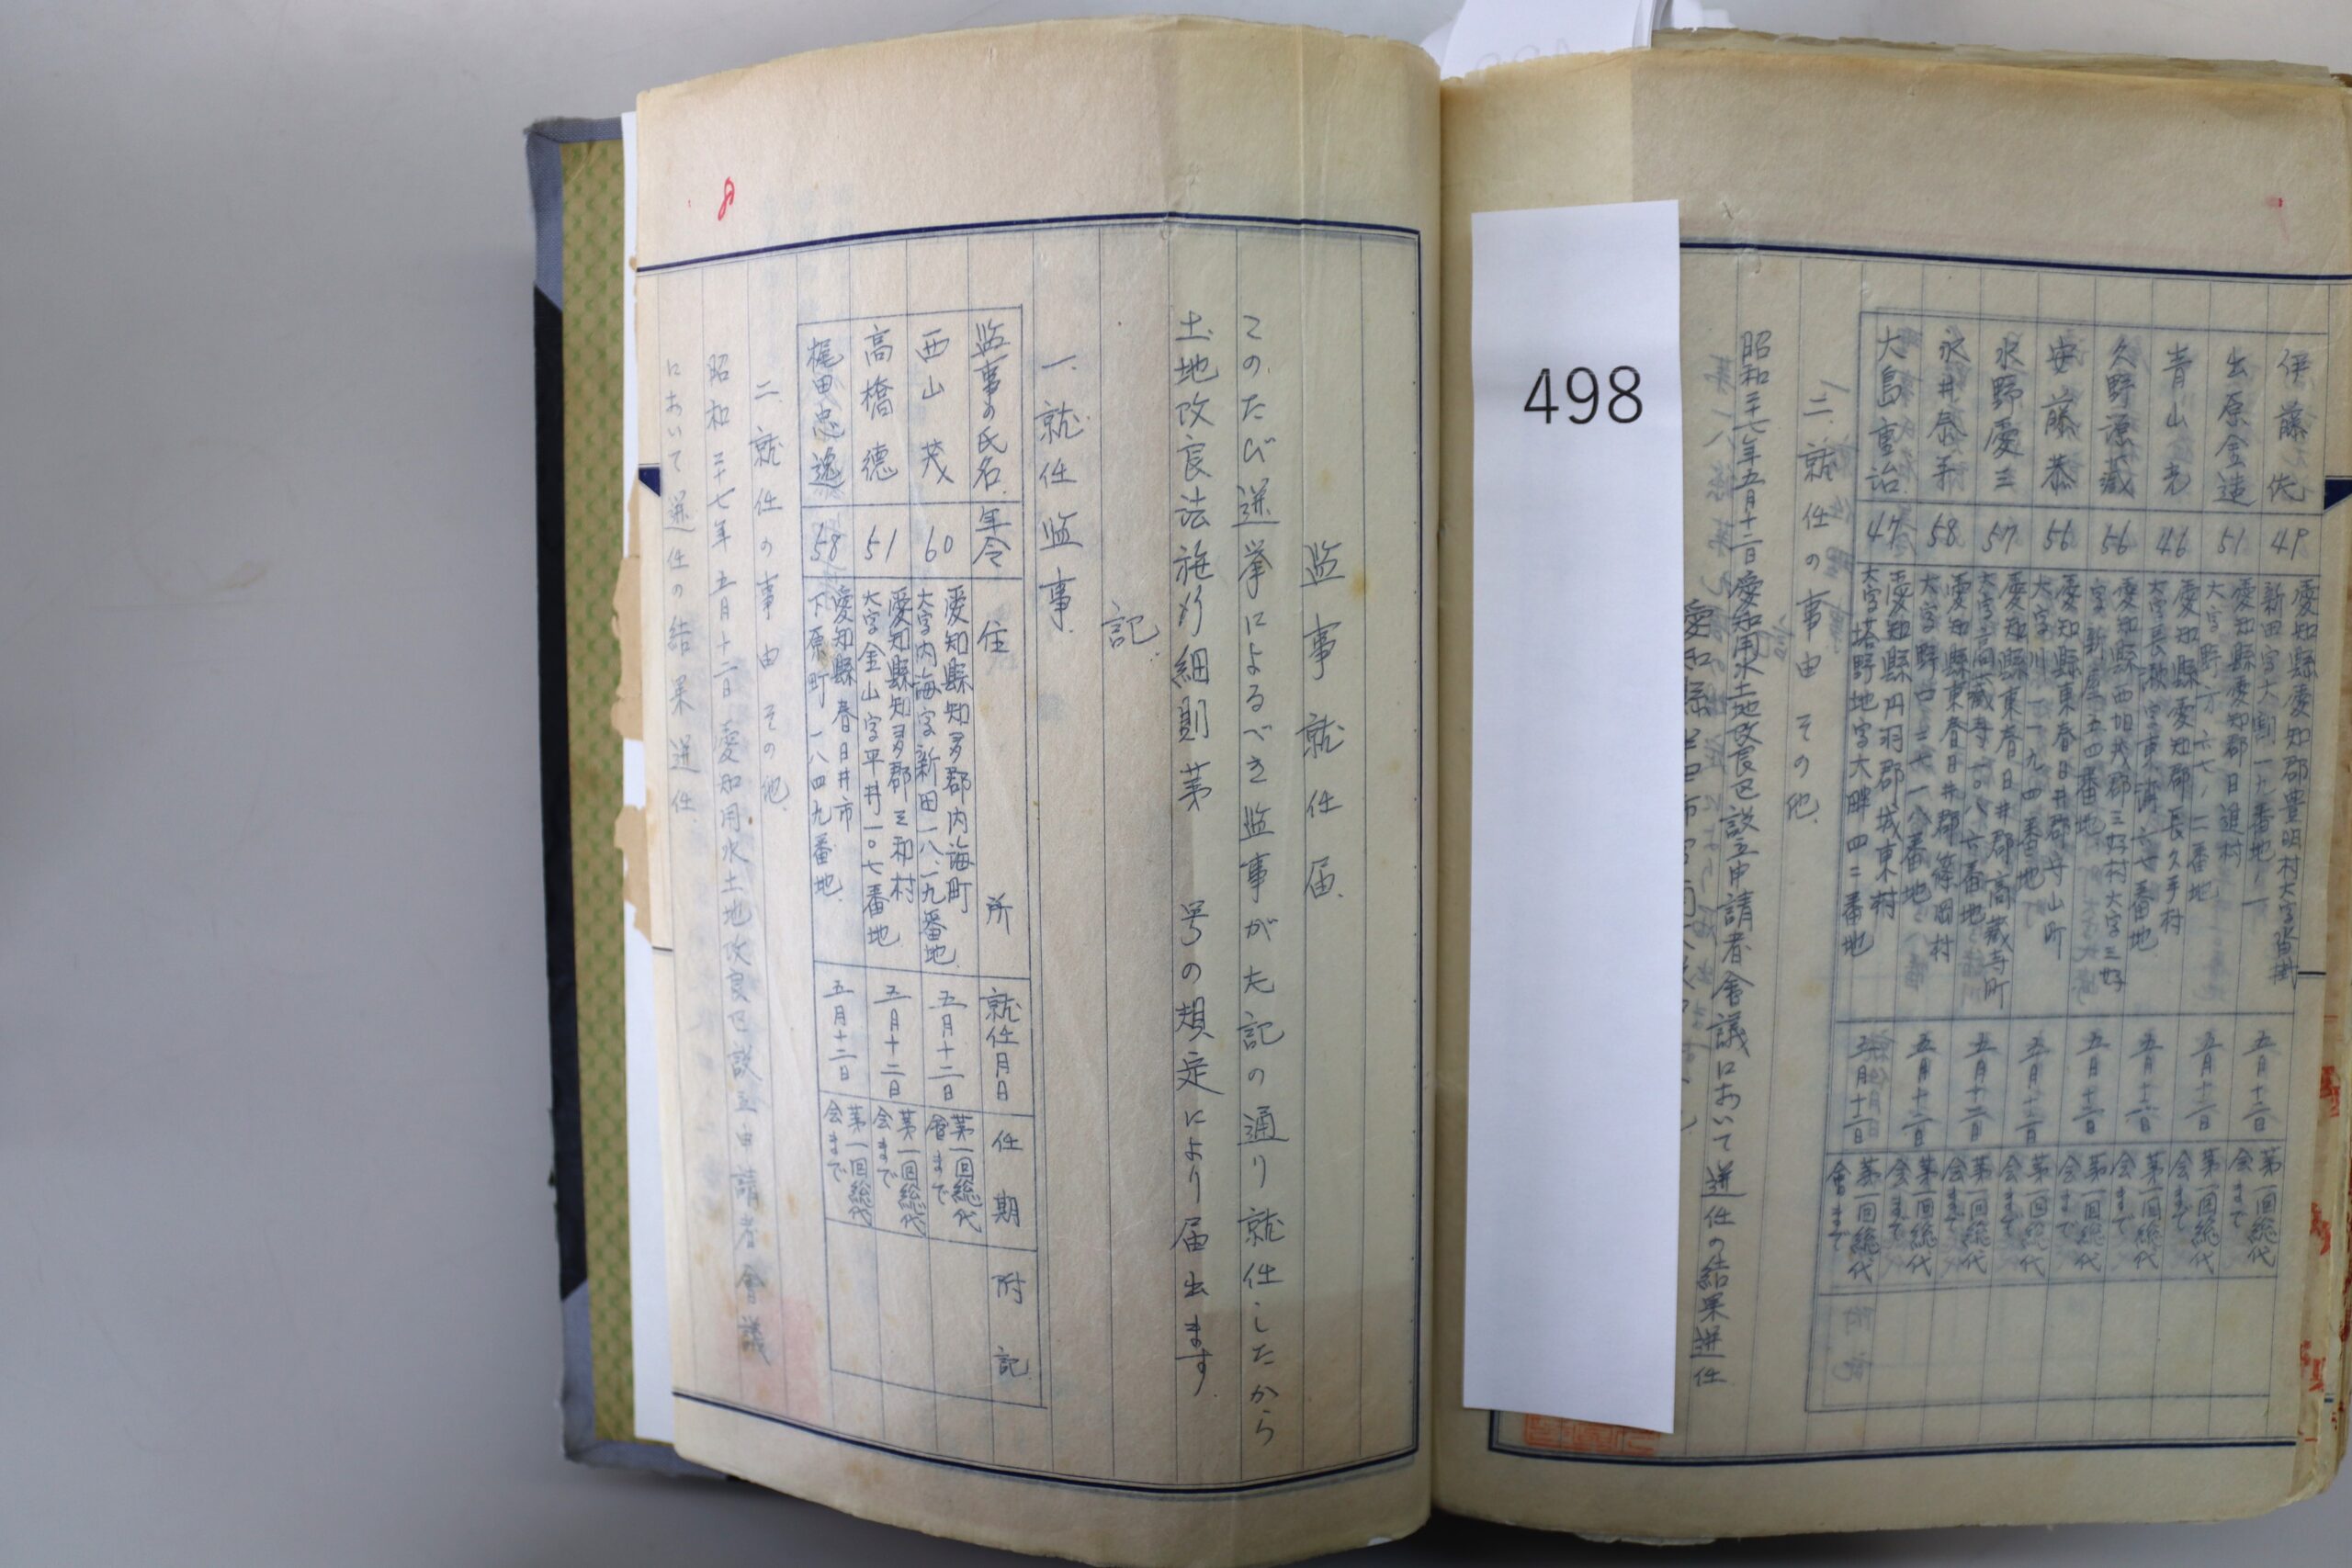 伊藤佐 49 愛知縣愛知郡豊明村大字沓掛新田字大割一九番地ノ一 五月十二日 第一回総代会まで
出原金造 51 愛知縣愛知郡日進村大字野方六七ノ二番地 五月十二日 第一回総代会まで
青山老 46 愛知縣愛知郡長久手村大字長湫字東浦六七番地 五月十二日 第一回総代会まで
久野源蔵 56 愛知縣西加茂郡三好村大字三好字新屋一五四番地 五月十二日 第一回総代会まで
安藤恭 56 愛知縣東春日井郡守山町大字川一一九四番地 五月十二日 第一回総代会まで
水野慶三 57 愛知縣東春日井郡高蔵寺町大字高蔵寺一〇八六番地 五月十二日 第一回総代会まで
58 愛知縣東春日井郡篠岡村大字野口 五月十二日 第一回総代会まで
大島重治 47 愛知縣丹羽郡城東村大字塔野地字大畔四二番地 五月十二日 第一回総代會まで
二、就任の事由その他
昭和二十七年五月十二日愛知用水土地改良区設立申請者會議において選任の結果選任
498
监事就任届
このたび選挙によるべき监事が左記の通り就任したから
土地改良法施行細則第 号の規定により届出ます
記
一、就任监事
监事の氏名 年令 住所 就任月日 任期 附記
西山茂 60 愛知縣知多郡内海町大字内海字新田一八、一九番地 五月十二日 第一回総代會まで
高橋德 51 愛知縣知多郡三和村大字金山字平井一〇七番地 五月十二日 第一回総代会まで
梶田忠逸 58 愛知縣春日井市下原町一八四九番地 五月十二日 第一回総代会まで
二、就任の事由その他
昭和二十七年五月十二日愛知用水土地改良区設立申請者會議
において選任の結果選任